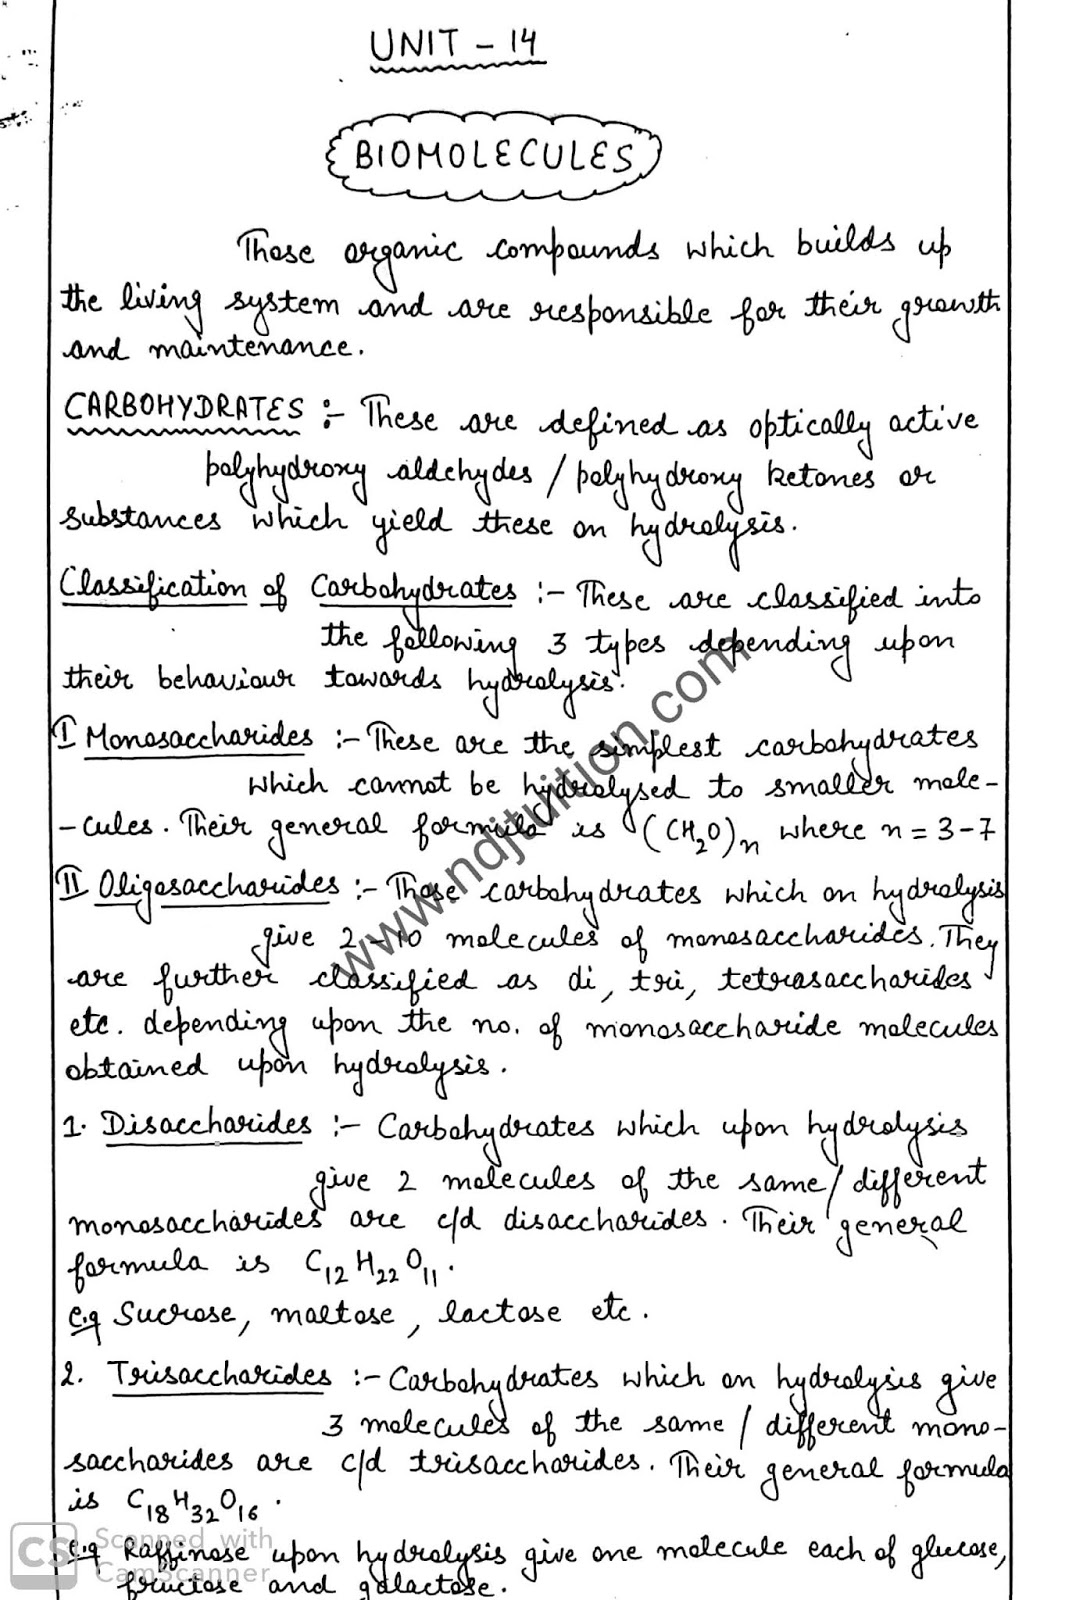 UNIT - 14
BIOMOLECULES
Those organic compounds which builds up
the living system and are responsible for their growth
and maintenance.
CARBOHYDRATES :- These are defined as optically active
polyhydroxy aldehydes / polyhydroxy ketones or
substances which yield these on hydrolysis.
Classification of Carbohydrates :- These are classified into
the following 3 types depending upon
their behaviour towards hydrolysis.
I Monosaccharides :- These are the simplest carbohydrates
which cannot be hydrolysed to smaller mole-
-cules. Their general formula is (CH₂O)n where n = 3-7
II Oligosaccharides :- Those carbohydrates which on hydrolysis
give 2-10 molecules of monosaccharides. They
are further classified as di, tri, tetrasaccharides
etc. depending upon the no. of monosaccharide molecules
obtained upon hydrolysis.
1. Disaccharides :- Carbohydrates which upon hydrolysis
give 2 molecules of the same/different
monosaccharides are c/d disaccharides. Their general
formula is C₁₂H₂₂O₁₁.
e.g Sucrose, maltose, lactose etc.
2. Trisaccharides :- Carbohydrates which on hydrolysis give
3 molecules of the same / different mono-
saccharides are c/d trisaccharides. Their general formula
is C₁₈H₃₂O₁₆.
e.g Raffinose upon hydrolysis give one molecule each of glucose,
fructose and galactose.
www.ndjtuition.com
CS Scanned with
CamScanner